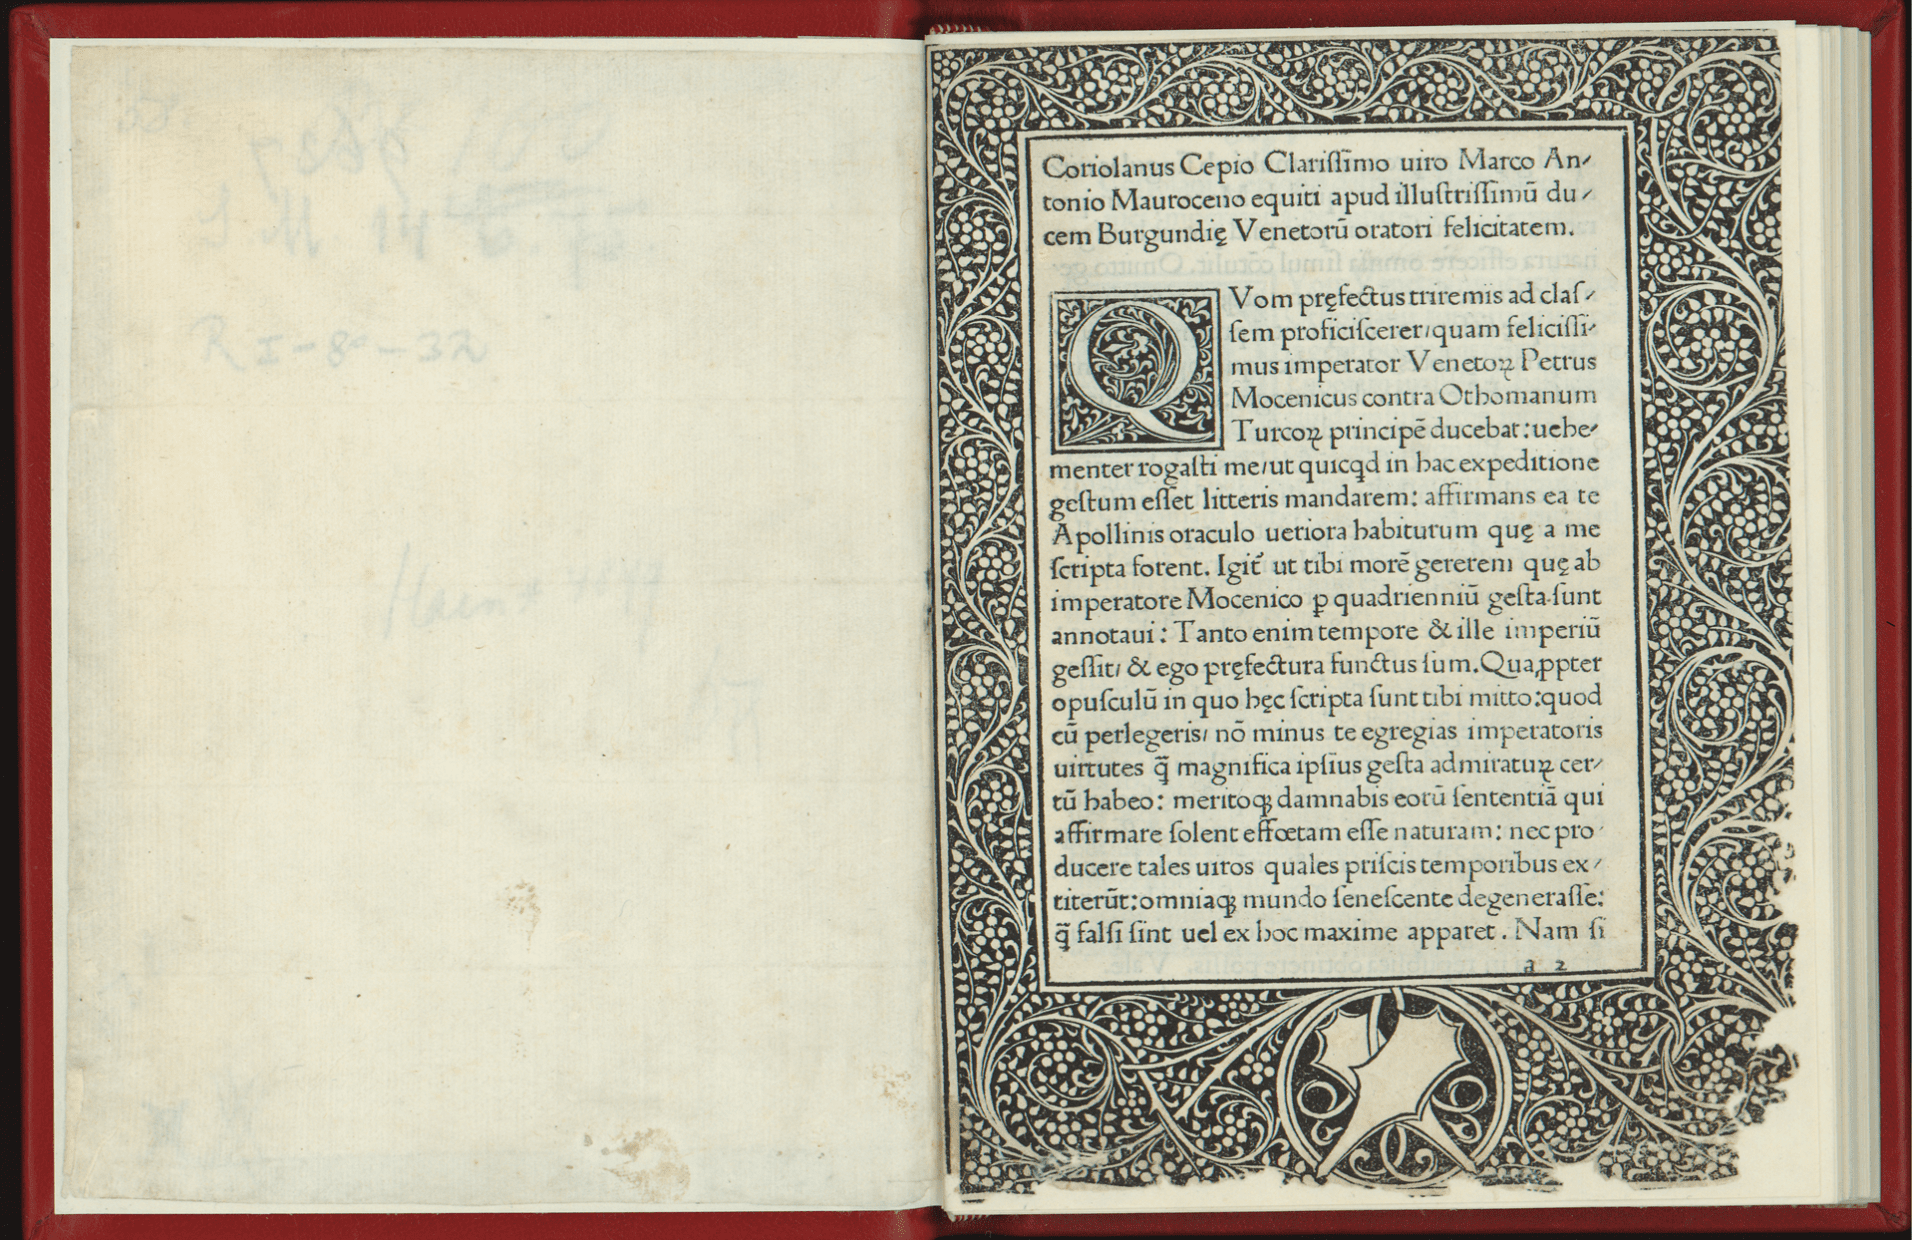 R I-8°-32
Coriolanus Cepio Clariſſimo uiro Marco An-
tonio Mauroceno equiti apud illuſtriſſimũ du-
cem Burgundię Venetorũ oratori felicitatem.
QVom pręfectus triremis ad claſ-
ſem proficiſcerer/quam feliciſſi-
mus imperator Venetoꝝ Petrus
Mocenicus contra Othomanum
Turcoꝝ principẽ ducebat: uehe-
menter rogaſti me/ut quicqd in hac expeditione
geſtum eſſet litteris mandarem: affirmans ea te
Apollinis oraculo ueriora habiturum quę a me
ſcripta forent. Igit̃ ut tibi morẽ gererem quę ab
imperatore Mocenico ꝑ quadrienniũ geſta ſunt
annotaui: Tanto enim tempore & ille imperiũ
geſſit/ & ego pręfectura functus ſum. Quaꝓpter
opuſculũ in quo hęc ſcripta ſunt tibi mitto: quod
cũ perlegeris/ nõ minus te egregias imperatoris
uirtutes q̃ magnifica ipſius geſta admiratuꝝ cer-
tũ habeo: meritoqꝫ damnabis eorũ ſententiã qui
affirmare ſolent effœtam eſſe naturam: nec pro-
ducere tales uiros quales priſcis temporibus ex-
titerũt: omniaqꝫ mundo ſeneſcente degeneraſſe:
q̃ falſi ſint uel ex hoc maxime apparet. Nam ſi
a 2